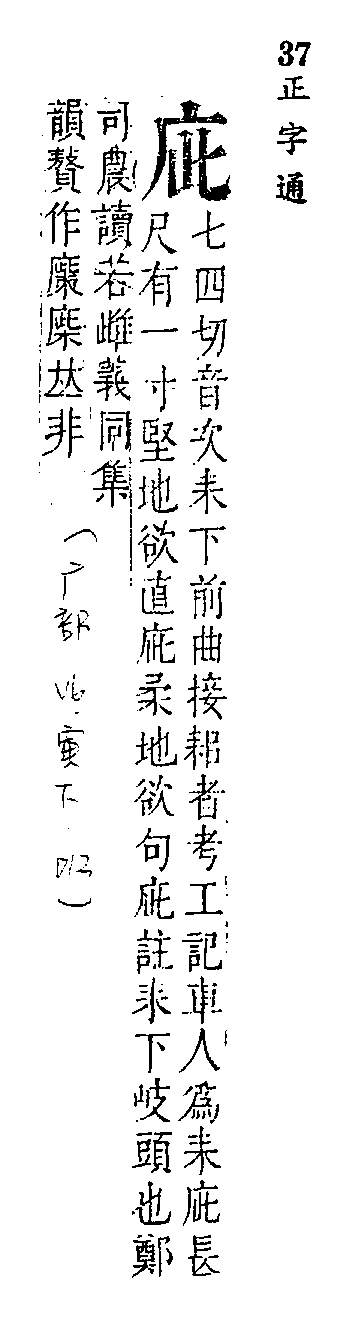 37
正字通
庛
七四切音次耒下前曲接耜者考工記車人爲耒庛長
尺有一寸堅地欲直庛柔地欲句庛註耒下岐頭也鄭
司農讀若雌義同集
韻贅作𠀤非
(广部 寅下)